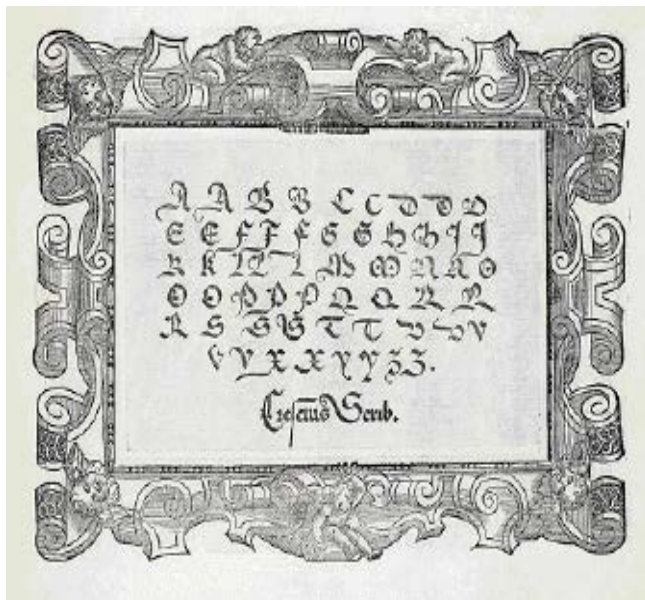 A A B B C C D D D
E E F F F G G H H I I
K K L L L M M N N O
O O P P P Q Q R R
R S S S T T V V V
V V X X Y Y Z Z.
Scrib.